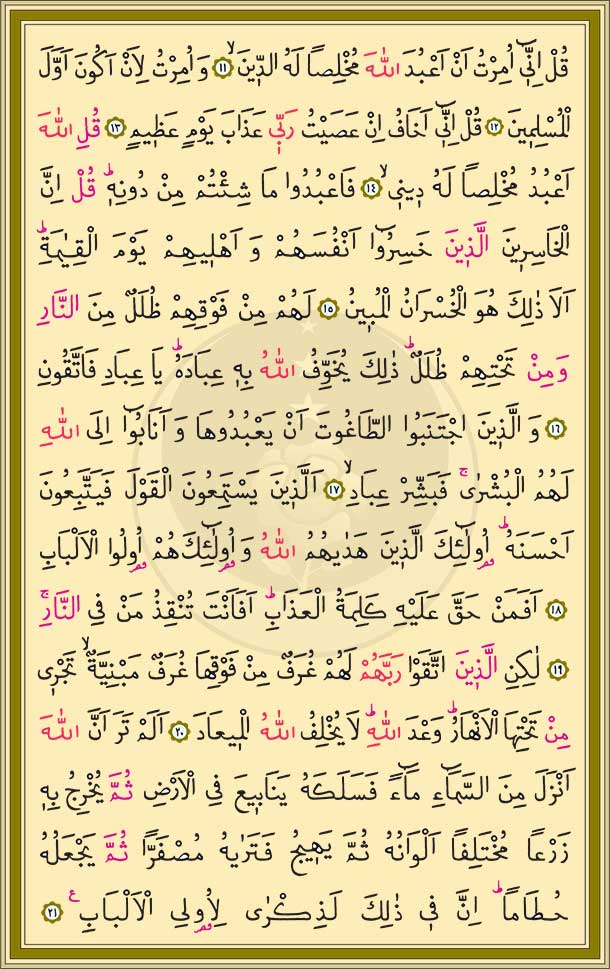 قُلْ اِنّٓي اُمِرْتُ اَنْ اَعْبُدَ اللّٰهَ مُخْلِصاً لَهُ الدّ۪ينَۙ ﴿١١﴾ وَاُمِرْتُ لِاَنْ اَكُونَ اَوَّلَ
الْمُسْلِم۪ينَ ﴿١٢﴾ قُلْ اِنّ۪ٓي اَخَافُ اِنْ عَصَيْتُ رَبّ۪ي عَذَابَ يَوْمٍ عَظ۪يمٍ ﴿١٣﴾ قُلِ اللّٰهَ
اَعْبُدُ مُخْلِصاً لَهُ د۪ين۪يۙ ﴿١٤﴾ فَاعْبُدُوا مَا شِئْتُمْ مِنْ دُونِه۪ۜ قُلْ اِنَّ
الْخَاسِر۪ينَ الَّذ۪ينَ خَسِرُٓوا اَنْفُسَهُمْ وَاَهْل۪يهِمْ يَوْمَ الْقِيٰمَةِۜ
اَلَا ذٰلِكَ هُوَ الْخُسْرَانُ الْمُب۪ينُ ﴿١٥﴾ لَهُمْ مِنْ فَوْقِهِمْ ظُلَلٌ مِنَ النَّارِ
وَمِنْ تَحْتِهِمْ ظُلَلٌۜ ذٰلِكَ يُخَوِّفُ اللّٰهُ بِه۪ عِبَادَهُۜ يَا عِبَادِ فَاتَّقُونِ
﴿١٦﴾ وَالَّذ۪ينَ اجْتَنَبُوا الطَّاغُوتَ اَنْ يَعْبُدُوهَا وَاَنَابُٓوا اِلَى اللّٰهِ
لَهُمُ الْبُشْرٰىۚ فَبَشِّرْ عِبَادِۙ ﴿١٧﴾ اَلَّذ۪ينَ يَسْتَمِعُونَ الْقَوْلَ فَيَتَّبِعُونَ
اَحْسَنَهُۜ اُو۬لٰٓئِكَ الَّذ۪ينَ هَدٰيهُمُ اللّٰهُ وَاُو۬لٰٓئِكَ هُمْ اُو۬لُوا الْاَلْبَابِ
﴿١٨﴾ اَفَمَنْ حَقَّ عَلَيْهِ كَلِمَةُ الْعَذَابِۜ اَفَاَنْتَ تُنْقِذُ مَنْ فِي النَّارِۚ
﴿١٩﴾ لٰكِنِ الَّذ۪ينَ اتَّقَوْا رَبَّهُمْ لَهُمْ غُرَفٌ مِنْ فَوْقِهَا غُرَفٌ مَبْنِيَّةٌۙ تَجْر۪ي
مِنْ تَحْتِهَا الْاَنْهَارُۜ وَعْدَ اللّٰهِۜ لَا يُخْلِفُ اللّٰهُ الْم۪يعَادَ ﴿٢٠﴾ اَلَمْ تَرَ اَنَّ اللّٰهَ
اَنْزَلَ مِنَ السَّمَٓاءِ مَٓاءً فَسَلَكَهُ يَنَاب۪يعَ فِي الْاَرْضِ ثُمَّ يُخْرِجُ بِه۪
زَرْعاً مُخْتَلِفاً اَلْوَانُهُ ثُمَّ يَه۪يجُ فَتَرٰيهُ مُصْفَراًّ ثُمَّ يَجْعَلُهُ
حُطَاماًۜ اِنَّ ف۪ي ذٰلِكَ لَذِكْرٰى لِاُو۬لِي الْاَلْبَابِ۟ ﴿٢١﴾